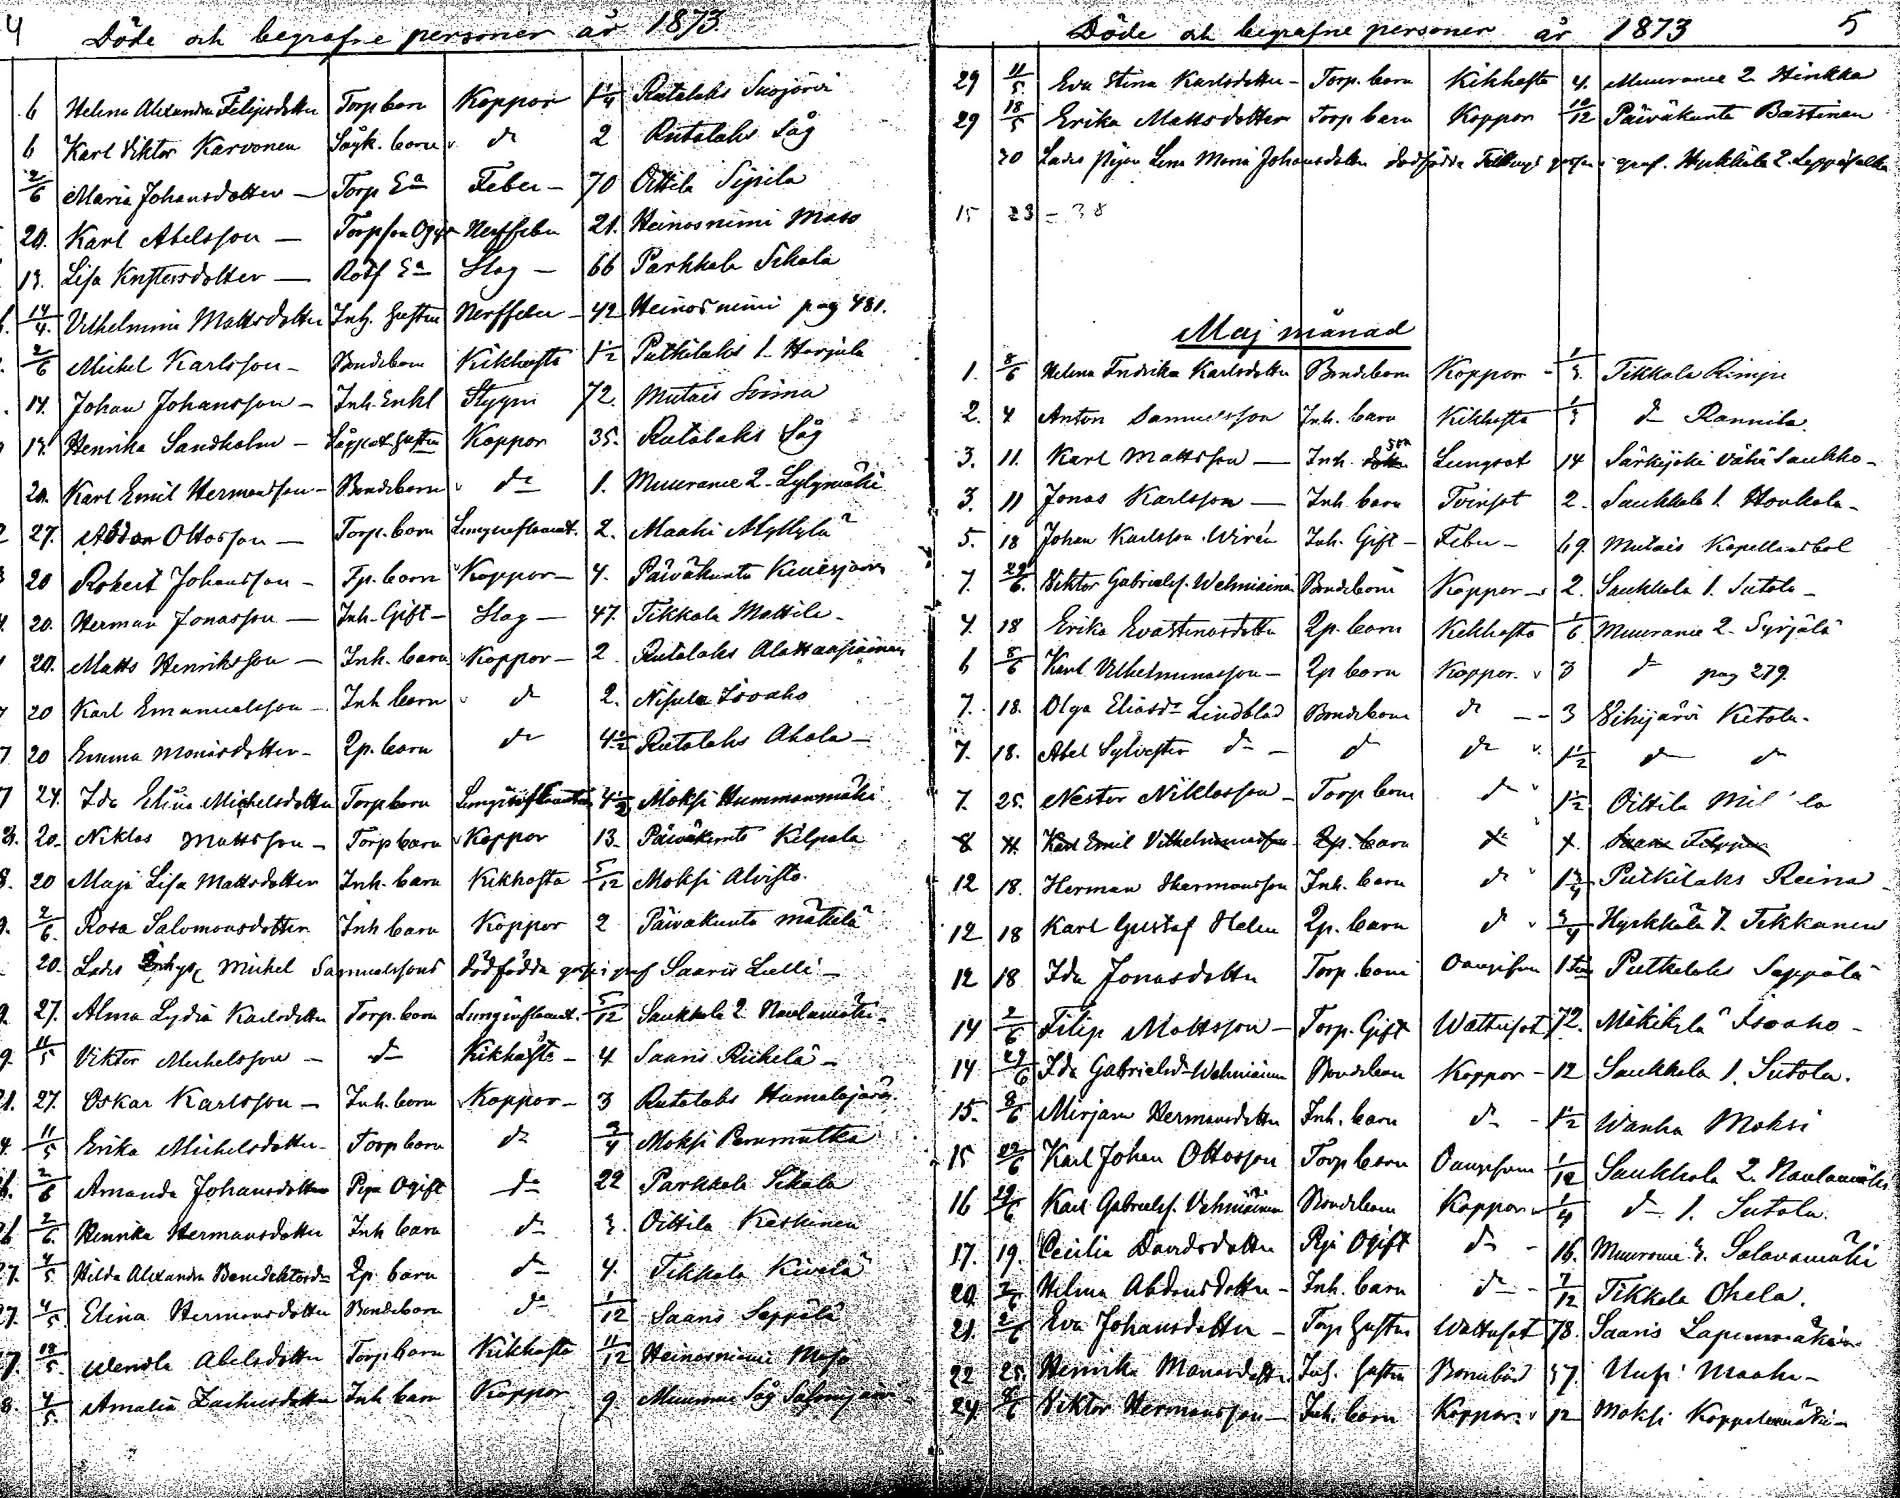 4 Döde och begrafne personer år 1873.
6 Helena Alexandra Filipsdotter Torp barn Koppor 1 1/4 Rutalaks Suojärvi
6 Karl Viktor Karvonen Sågk. barn do 2 Rutalaks Såg
2/6 Maria Johansdotter Torp Ea Feber 70 Oittila Sipila
20. Karl Abelsson Torpson Ogift Nerffeber 21. Heinosniemi Maso
13. Lisa Kristersdotter Rotf Ea Slag 66 Parkkala Sikala
14/4. Vilhelmina Mattsdotter Inh. hustru Nerffeber 42 Heinosniemi pag 481.
2/6 Michel Karlsson Bondebarn Kikhosta 1 1/2 Putkilaks 1 Harjula
14. Johan Johansson Inh. Enkl Stygn 72. Mutais Soima
13. Henrika Sandholm hustru Koppor 35. Rutalaks Såg
20. Karl Emil Hermansson Bondebarn do 1. Muurame 2 Lylymäki
27. Ottosson Torp. barn Lunginflamat. 2. Maahi Myllylä
20 Robert Johansson Tp. barn Koppor 4. Päiväkunta
20. Herman Jonasson Inh. Gift Slag 47. Tikkala Mattila
20. Matts Henriksson Inh. barn Koppor 2 Rutalaks
20 Karl Emanuelsson Inh barn do 2. Nisula Isoaho
7 20 Emma Monasdotter Bp. barn do 4 1/2 Rutalaks Ahola
7 24. Ida Elina Michelsdotter Torp barn Lunginflamation 4 1/2 Moksi Hummanmäki
20. Niklas Mattsson Torp barn Koppor 13. Päiväkunta Kilpala
8. 20 Maja Lisa Mattsdotter Inh. barn Kikhosta 5/12 Moksi Alvisto.
9. 2/6. Rosa Salomonsdotter Inh barn Koppor 2 Päiväkunta Mäkelä
20. Michel Samuelssons dödfödda gosse i graf Saaris Lulli
9. 27. Alma Lydia Karlsdotter Torp. barn Lunginflamat. 5/12 Saukkola 2 Naulamäki
9. 11/5 Viktor Michelsson do Kikhosta 4 Saaris Rikelä
21. 27. Oskar Karlsson Inh. barn Koppor 3 Rutalaks Humalajärvi
4. 11/5 Erika Michelsdotter Torp barn do 3/4 Moksi Perumutka
2/6 Amanda Johansdotter Piga Ogift do 22 Parkkola Sikala
2/6. Henrika Hermansdotter Inh barn do 3. Oittila Keskinen
27. 4/5 Hilda Alexandra Benediktsdr Bp. barn do 4. Tikkala Kivelä
27. 4/5 Elina Hermansdotter Bondebarn do 1/12 Saaris Seppälä
7. 18/5. Wendla Abelsdotter Torp. barn Kikhosta 11/12 Heinosniemi Maso
8. 4/5. Amalia Inh barn Koppor 9. Muurame Såg
Döde och begrafne personer år 1873 5
29 11/5 Eva Stina Karlsdotter Torp. barn Kikhosta 4. Muurame 2 Hinkka
29 18/5 Erika Mattsdotter Torp barn Koppor 10/12 Päiväkunta Bastinen
30 Lena Maria Johansdotter dödfödda gosse i graf. Hyrkkälä 2.
15 23 = 38
Maj månad
1. 8/6 Helena Fredrika Karlsdotter Bondebarn Koppor 1/3 Tikkala Rimpi
2. 4 Anton Samuelsson Inh. barn Kikhosta 1/3 do Rannila.
3. 11. Karl Mattsson Inh. son Lungsot 14 Särkijoki Vähä Saukko
3. 11 Jonas Karlsson Inh. barn Tvinsot 2. Saukkola 1. Hovkola
5. 18 Johan Karlsson Wirén Inh. Gift Feber 69. Mutais Kapellansbol
7. 29/6. Viktor Gabrielss. Wehmiäinen Bondebarn Koppor 2. Saukkola 1. Sutola
4. 18 Erika Evastinasdotter Bp. barn Kikhosta 1/6 Muurame 2. Syrjälä
6 8/6 Karl Vilhelminasson Bp barn Koppor. 3 do pag 279.
7. 18. Olga Eliasdr Lindblad Bondebarn do 3 Vihijärvi Ketola.
7. 18. Abel Sylvester do do do 1 1/2 do do
7. 25. Nestor Niklasson Torp barn do 1 1/2 Oittila
8 11. Karl Emil Vilhelminasson Bp. barn do
12 18. Herman Hermansson Inh. barn do 1 3/4 Putkilaks Reina
12 18 Karl Gustaf Helen Bp. barn do 3/4 Hyrkkälä 1. Tikkanen
12 18 Ida Jonasdotter Torp. barn Oangifven Putkilaks Seppälä
14 2/6 Filip Mattsson Torp. Gift Wattusot 72. Isoaho
14 29/6 Ida Gabrielsdr Wehmiäinen Bondebarn Koppor 12 Saukkola 1. Sutola.
15. 8/6 Mirjam Hermansdotter Inh. barn do 1 1/2 Wanha Moksi
15 22/6 Karl Johan Ottosson Torp barn Oangifven 1/12 Saukkola 2. Naulamäki
16 29/6 Karl Gabrielss. Vehmiäinen Bondebarn Koppor 1/4 do 1. Sutola.
17. 19. Cecilia Davidsdotter Piga Ogift do 16. Muurame 3. Salavamäki
20. 2/6 Helena Inh. barn do 7/12 Tikkala Ohela.
21. 2/6 Eva Johansdotter Torp hustru Wattusot 78. Saaris
22 25. Henrika Manasdotter Inh. hustru Barnsbörd 37. Uusi Maahi
24. 8/6 Viktor Hermansson Inh. barn Koppor 12 Moksi Koppelomäki